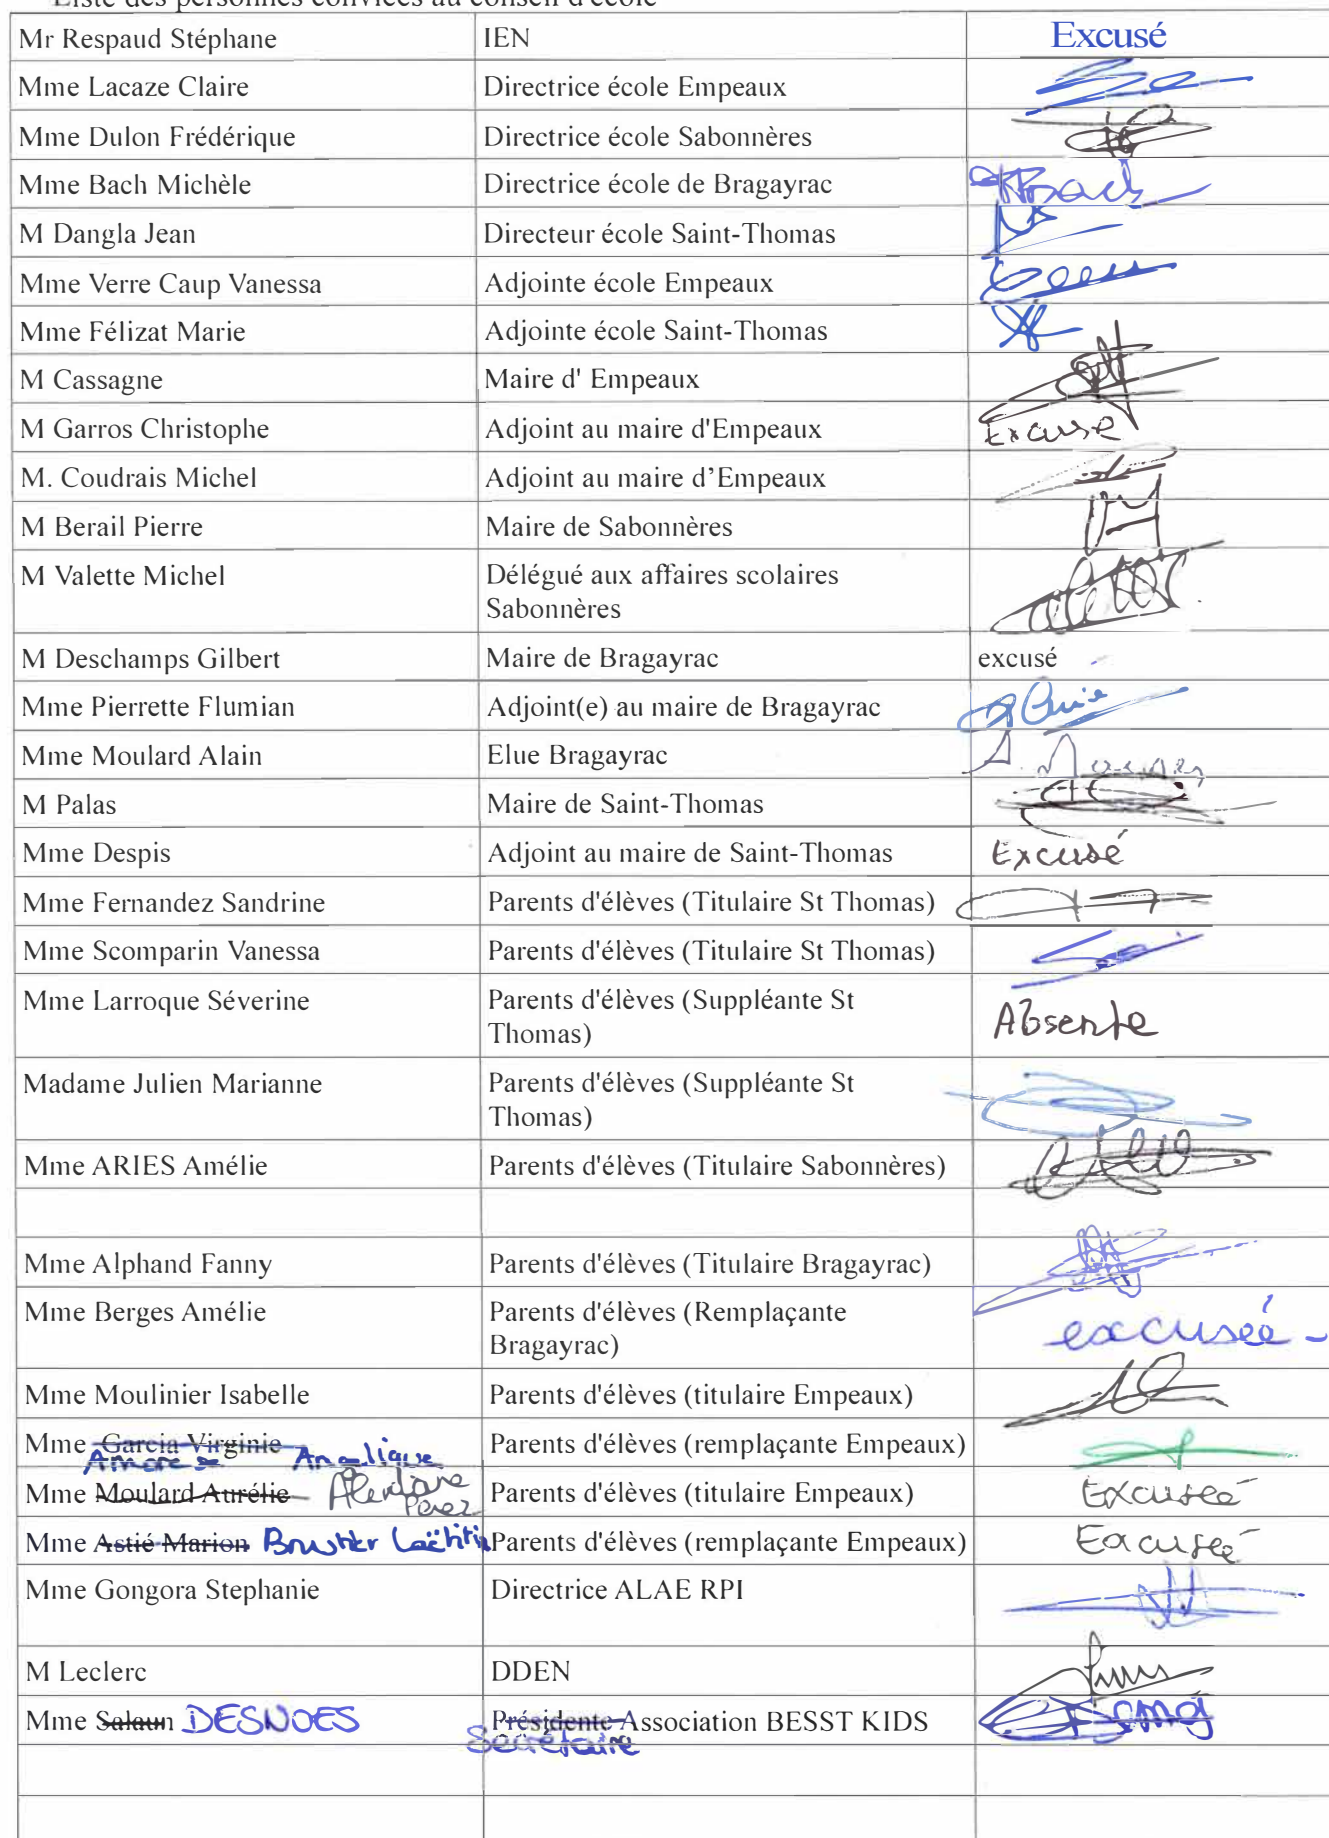 Liste des personnes conviées au conseil d'école
Mr Respaud Stéphane IEN Excusé
Mme Lacaze Claire Directrice école Empeaux
Mme Dulon Frédérique Directrice école Sabonnères
Mme Bach Michèle Directrice école de Bragayrac Bach
M Dangla Jean Directeur école Saint-Thomas
Mme Verre Caup Vanessa Adjointe école Empeaux
Mme Félizat Marie Adjointe école Saint-Thomas
M Cassagne Maire d' Empeaux
M Garros Christophe Adjoint au maire d'Empeaux Excusé
M. Coudrais Michel Adjoint au maire d’Empeaux
M Berail Pierre Maire de Sabonnères
M Valette Michel Délégué aux affaires scolaires
Sabonnères
M Deschamps Gilbert Maire de Bragayrac excusé
Mme Pierrette Flumian Adjoint(e) au maire de Bragayrac
Mme Moulard Alain Elue Bragayrac
M Palas Maire de Saint-Thomas
Mme Despis Adjoint au maire de Saint-Thomas Excusé
Mme Fernandez Sandrine Parents d'élèves (Titulaire St Thomas)
Mme Scomparin Vanessa Parents d'élèves (Titulaire St Thomas)
Mme Larroque Séverine Parents d'élèves (Suppléante St
Thomas) Absente
Madame Julien Marianne Parents d'élèves (Suppléante St
Thomas)
Mme ARIES Amélie Parents d'élèves (Titulaire Sabonnères)
Mme Alphand Fanny Parents d'élèves (Titulaire Bragayrac)
Mme Berges Amélie Parents d'élèves (Remplaçante
Bragayrac) excuseé -
Mme Moulinier Isabelle Parents d'élèves (titulaire Empeaux)
Mme Garcia Virginie Parents d'élèves (remplaçante Empeaux)
Mme Moulard Aurélie Perez Parents d'élèves (titulaire Empeaux) Excuseé
Mme Astié Marion Laëtitia Parents d'élèves (remplaçante Empeaux) Excuseé
Mme Gongora Stephanie Directrice ALAE RPI
M Leclerc DDEN
Mme Salaun DESNOES Présidente Association BESST KIDS
Secrétaire